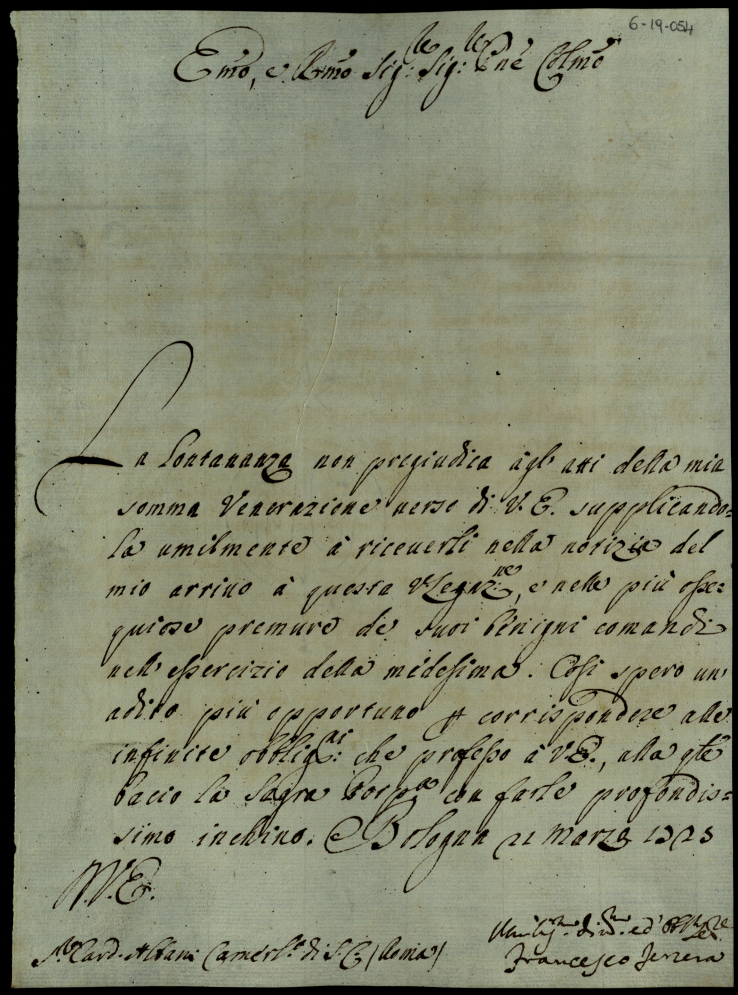 6-19-054
Emo, e Rmo Sig:re Sig:re Pne Colmo
La Lontananza non pregiudica àgl' atti della mia
somma Venerazione verso di V. E. supplicando=
la umilmente à riceverli nella notizia del
mio arrivo à questa VLegaz:ne, e nelle più osse=
quiose premure de suoi benigni comandi
nell' essercizio della medesima. Così spero un'
adito più opportuno p corrispondere alle
infinite obblig:ni che professo à V.E., alla qle
bacio la Sagra Porpa con farle profondis=
simo inchino. Bologna 21 Marzo 1725
V. E.
Sr Card. Albani Camerlo di S. C. (Roma)
Umilmo divmo ed
Francesco